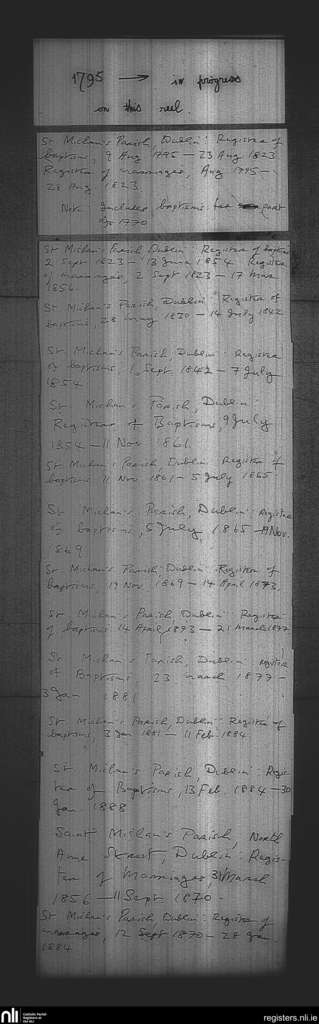 1795 → in progress
on this reel
St Michan's Parish, Dublin: Register of
baptisms, 3 Aug 1795 — 23 Aug 1823
Register of marriages, Aug 1795 —
28 Aug 1823
Note includes baptisms for part
of 1770
St Michan's Parish Dublin: Register of baptisms
2 Sept 1823 — 13 June 1854 Register
of marriages, 2 Sept 1823 — 17 Mar
1856
St Michan's Parish Dublin: Register of
baptisms, 28 May 1830 — 14 July 1842
St. Michan's Parish, Dublin: Register
of baptisms, 1 Sept. 1842 — 7 July
1854
St Michan's Parish, Dublin:
Register of Baptisms, 9 July
1854 — 11 Nov 1861
St Michan's Parish, Dublin: Register of
baptisms 11 Nov 1861 — 5 July 1865
St Michan's Parish, Dublin: Register
of baptisms, 5 July 1865 — 19 Nov.
1869
St Michan's Parish Dublin: Register of
baptisms, 19 Nov 1869 — 14 April 1873
St. Michan's Parish, Dublin: Register
of baptisms 14 April 1873 — 21 March 1877
St Michan's Parish, Dublin register
of Baptisms 23 March 1877 —
3 Jan 1881
St. Michan's Parish, Dublin: Register of
baptisms, 3 Jan 1881 — 11 Feb 1884
St. Michan's Parish, Dublin: Regis-
ter of Baptisms, 13 Feb. 1884 — 30
Jan 1888
Saint Michan's Parish, North
Anne Street, Dublin: Regis-
ter of Marriages, 31 March
1856 — 11 Sept 1870
St Michan's Parish Dublin: Register of
marriages, 12 Sept 1870 — 28 Jan
1884
nli
Catholic Parish
Registers at
the NLI
registers.nli.ie